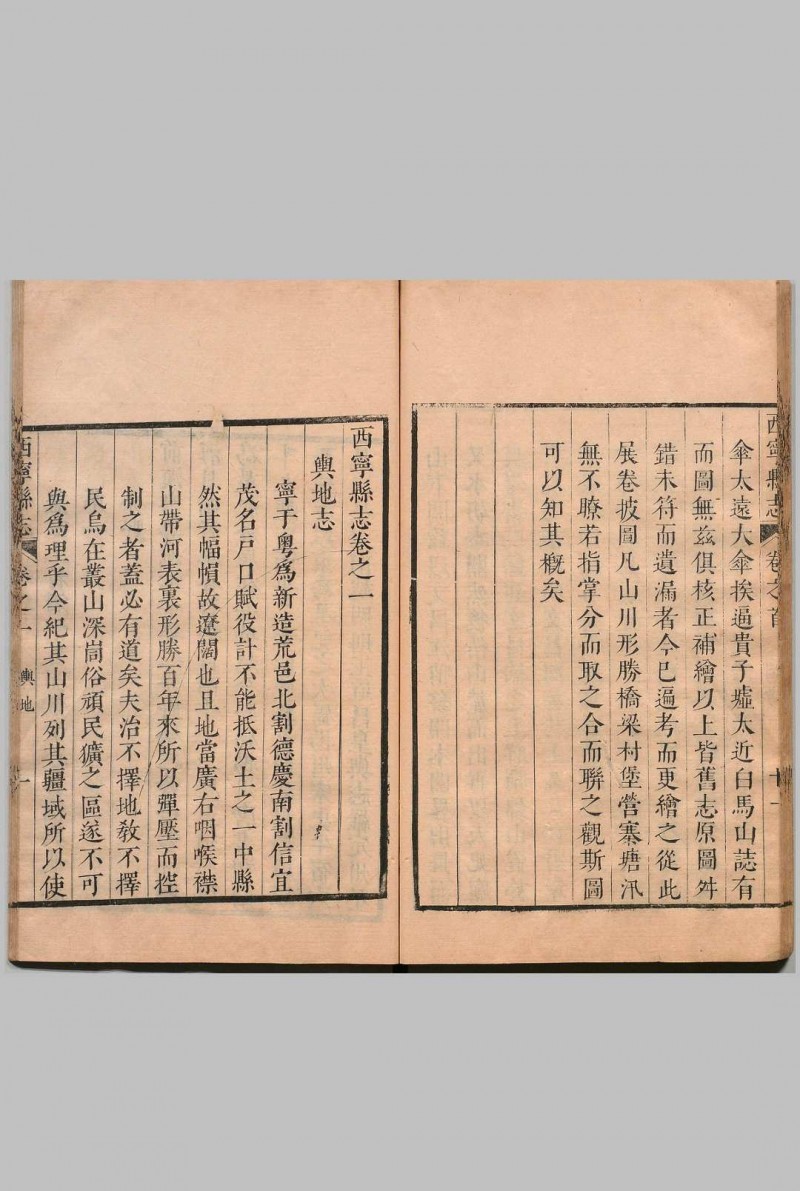 西寧縣志
卷之首
十一
傘太遠大傘挨逼貴子墟太近白馬山誌有
而圖無茲俱核正補繪以上皆舊志原圖舛
錯未符而遺漏者今已遍考而更繪之從此
展卷披圖凡山川形勝橋梁村堡營寨塘汛
無不瞭若指掌分而取之合而聯之觀斯圖
可以知其概矣
西寧縣志卷之一
輿地志
寧于粵爲新造荒邑北割德慶南割信宜
茂名戶口賦役計不能抵沃土之一中縣
然其幅幀故遼闊也且地當廣右咽喉襟
山帶河表裏形勝百年來所以彈壓而控
制之者蓋必有道矣夫治不擇地敎不擇
民烏在叢山深峝俗頑民獷之區遂不可
與爲理乎今紀其山川列其疆域所以使
西寧縣志
卷之一
輿地
一